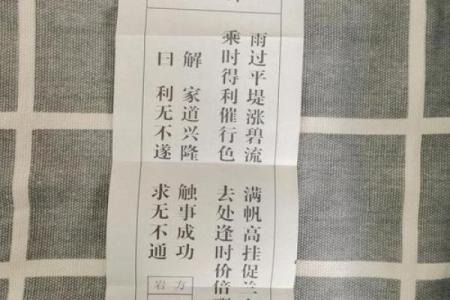 雨过平堤涨碧流 满帆高挂促兰
乘时得利催行色 去处逢时价倍
解 家道兴隆 触事成功
曰 利无不遂 求无不通
方
岩